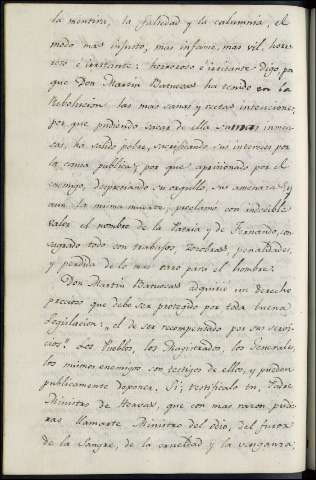 la mentira, la falsedad y la calumnia, el
modo mas injusto, mas infame, mas vil, horro
roso é irritante: horroroso é irritante digo por
que Don Martin Batuecas ha tenido en la
Rebelucion las mas sanas y rectas intenciones,
por que pudiendo sacar de ella sumas inmen
sas, ha salido pobre, sacrificando sus intereses por
la causa publica; por que aprisionado por el
enemigo, despreciando su orgullo, sus amenazas, y
aun la misma muerte, proclamó con indecible
valor el nombre de la Patria y de Fernando, con
sagrado todo con trabajos, zozobras, penalidades,
y perdida de lo mas caro para el hombre.
Don Martin Batuecas adquirió un derecho
precioso que debe ser protegido por toda buena
Legislacion: "el de ser recompensado por sus servi
cios". Los Pueblos, los Magistrados, los Generales,
los mismos enemigos son testigos de ellos, y pueden
publicamente deponer. Si; testificalo tu, Padre
Ministro de Horcax, que con mas razon pudie
ras llamarte Ministro del odio, del furor
de la Sangre, de la crueldad y la venganza;